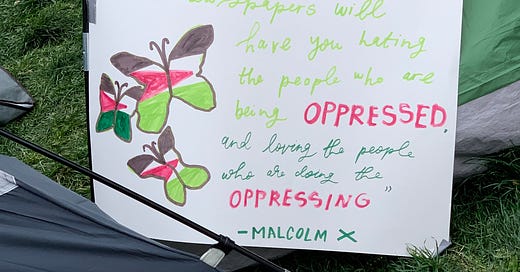 newspapers will
have you hating
the people who are
being OPPRESSED,
and loving the people
who are doing the
OPPRESSING"
-MALCOLM X